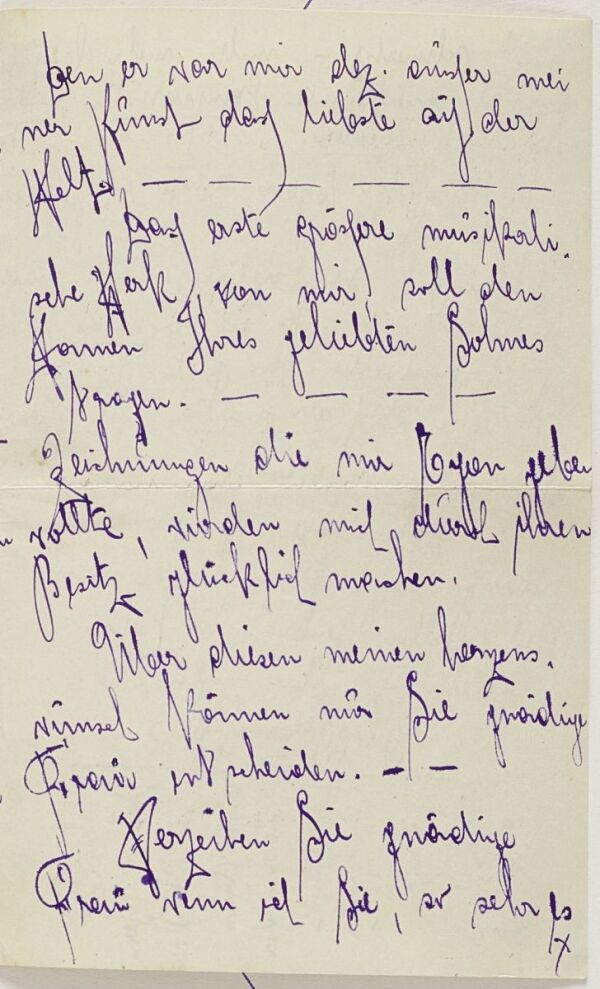 ben er war mir der. ausser mei
ner Kunst das liebste auf der
Welt. — — — — — —
Das erste grössere musikali.
sche Werk, von mir, soll den
Namen Ihres geliebten Sohnes
tragen. — — — —
Zeichnungen die mir Egon geben
wollte, würden mich durch ihren
Besitz glücklich machen.
Über diesen meinen herzens.
wunsch können nur Sie gnädige
Frau entscheiden. — —
Verzeihen Sie gnädige
Frau wenn ich Sie, so sehr